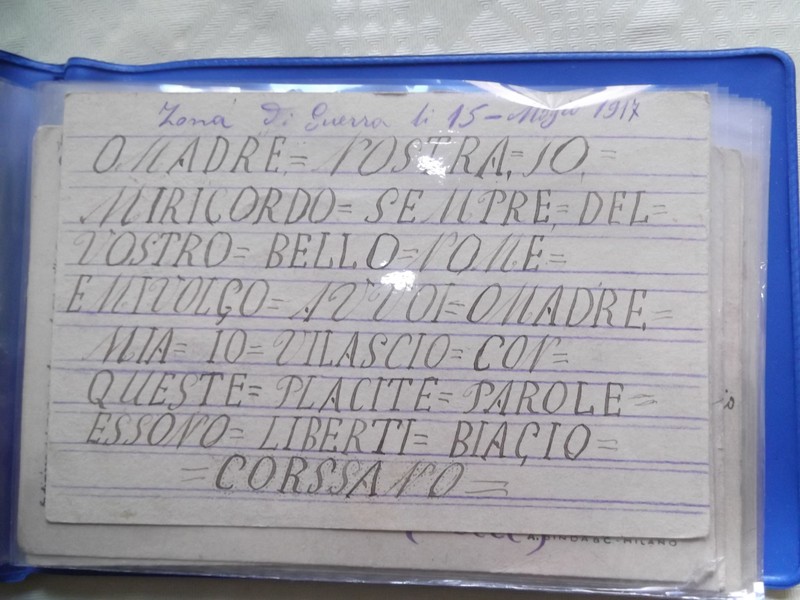 Zona Di Guerra li 15 - Magio 1917
O MADRE = NOSTRA, = IO, =
MIRICORDO = SEMPRE = DEL =
VOSTRO = BELLO = NOME =
EMIVOLGO = AVVOI = O MADRE, =
MIA = IO = VILASCIO = CON =
QUESTE = PLACITE = PAROLE =
ESSONO = LIBERTI = BIAGIO =
= CORSSANO =
MILANO